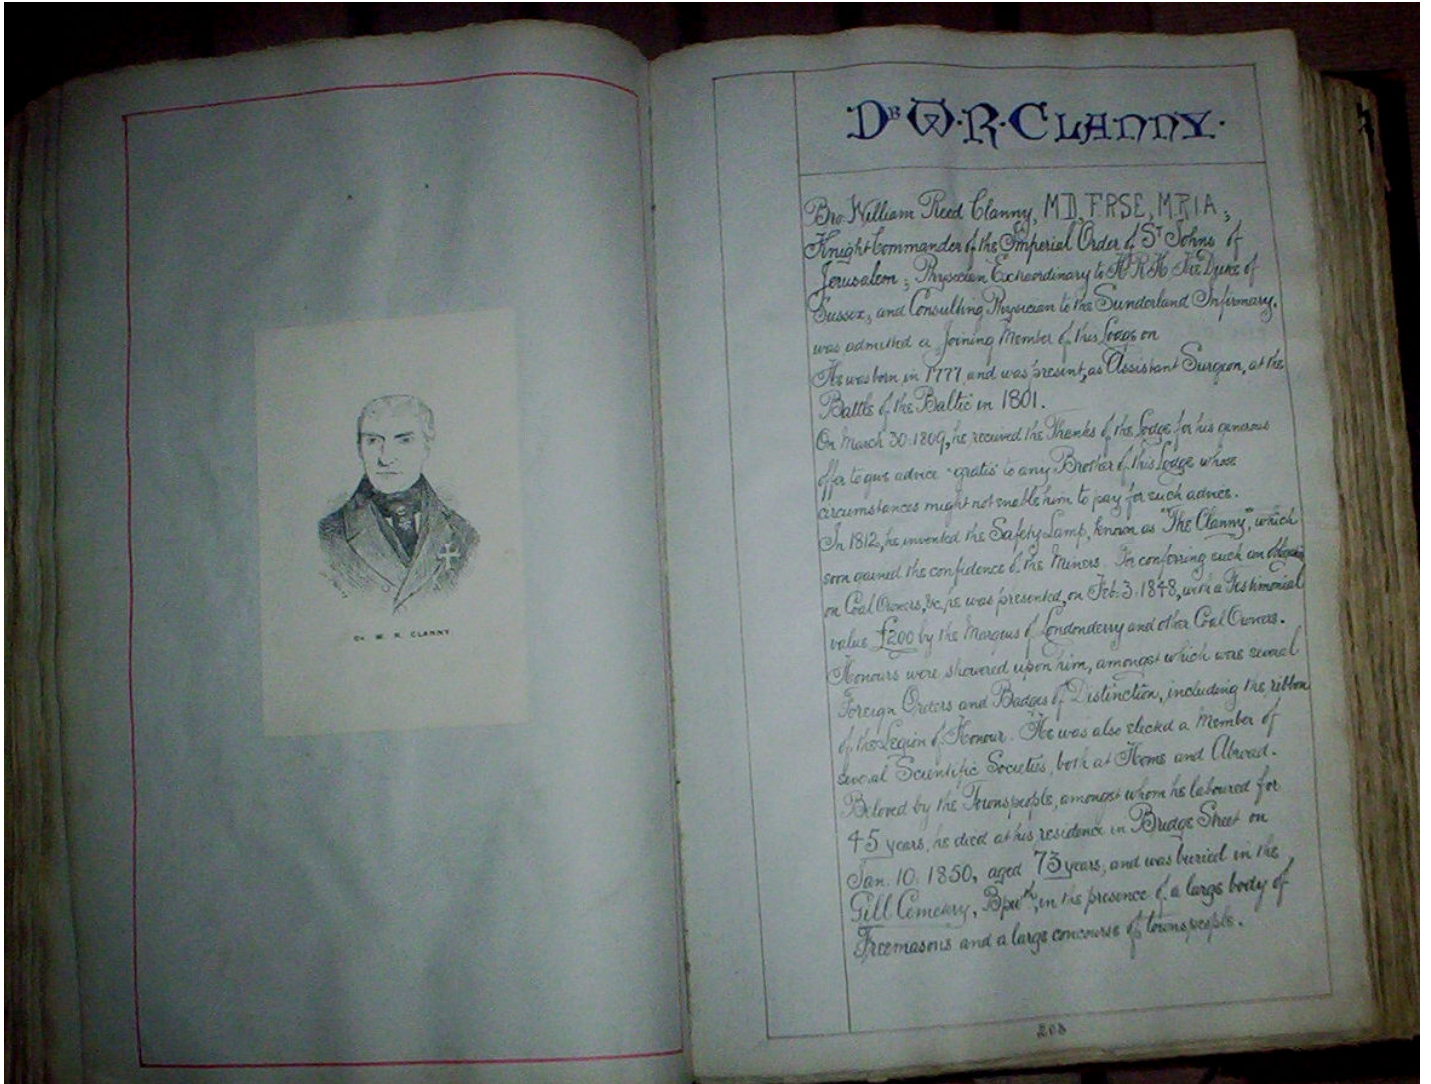 Dr W. R. CLANNY
·Dr·W·R·CLANNY·
Bro. William Reed Clanny, M.D, F.R.S.E, M.R.I.A,
Knight Commander of the Imperial Order of St Johns of
Jerusalem; Physician Extraordinary to H.R.H The Duke of
Sussex, and Consulting Physician to the Sunderland Infirmary.
was admitted a Joining Member of this Lodge on
He was born in 1777, and was present, as Assistant Surgeon, at the
Battle of the Baltic in 1801.
On March 30·1809, he received the Thanks of the Lodge for his generous
offer to give advice "gratis" to any Brother of this Lodge whose
circumstances might not enable him to pay for such advice.
In 1812, he invented the Safety Lamp, known as "The Clanny", which
soon gained the confidence of the Miners. For conferring such an
on Coal Owners, &c, he was presented, on Feb. 3. 1848, with a Testimonial
value £200 by the Marquis of Londonderry and other Coal Owners.
Honours were showered upon him, amongst which were several
Foreign Orders and Badges of Distinction, including the ribbon
of the Legion of Honour. He was also elected a Member of
several Scientific Societies, both at Home and Abroad.
Beloved by the Townspeople, amongst whom he laboured for
45 years, he died at his residence in Bridge Street on
Jan. 10. 1850, aged 73 years, and was buried in the
Gill Cemetery, in the presence of a large body of
Freemasons and a large concourse of townspeople.
203